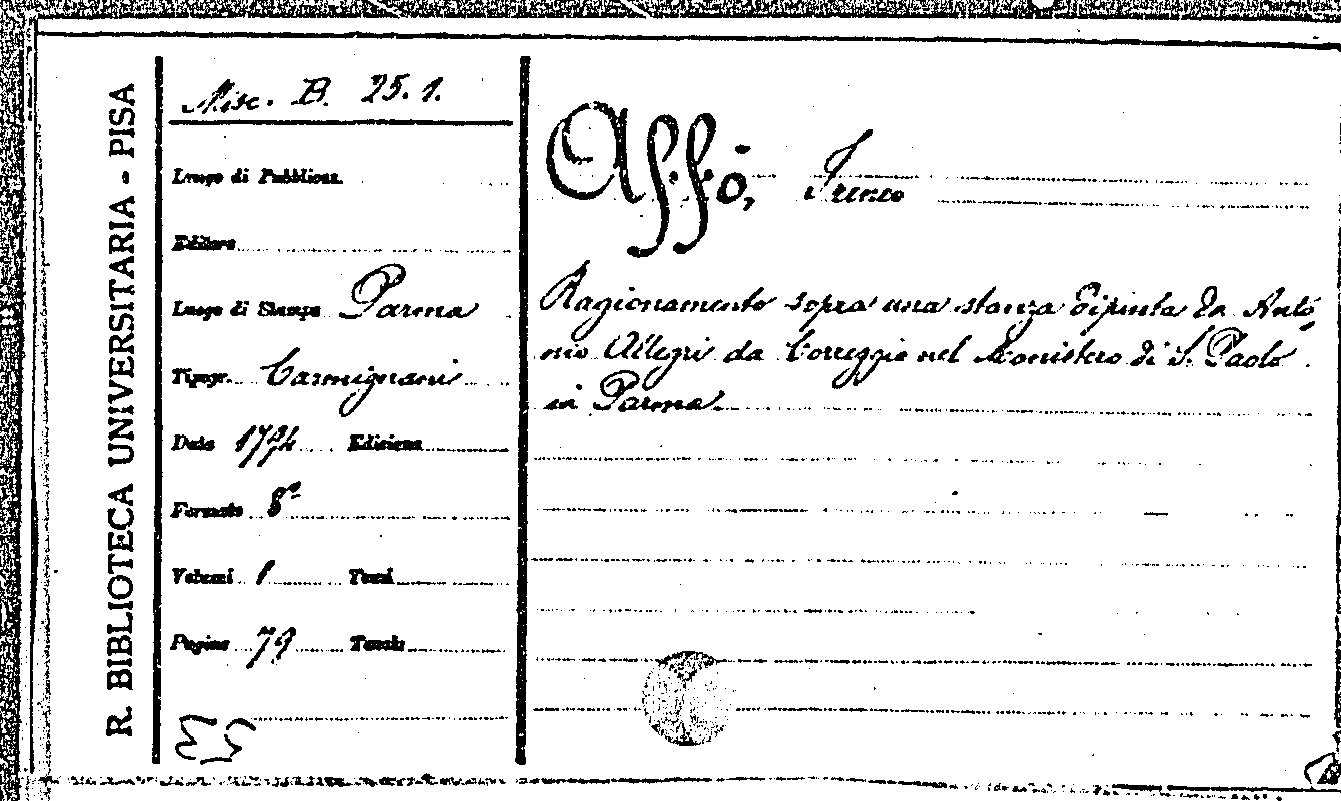 R. BIBLIOTECA UNIVERSITARIA - PISA
Misc. B. 25.1.
Luogo di Pubblicaz.
Editore
Luogo di Stampa Parma
Tipogr. Carmignani
Data 1794 Edizione
Formato 8º
Volumi 1 Tomi
Pagine 79 Tavole
Affò, Ireneo
Ragionamento sopra una stanza dipinta da Anto-
nio Allegri da Correggio nel Monistero di S. Paolo
in Parma